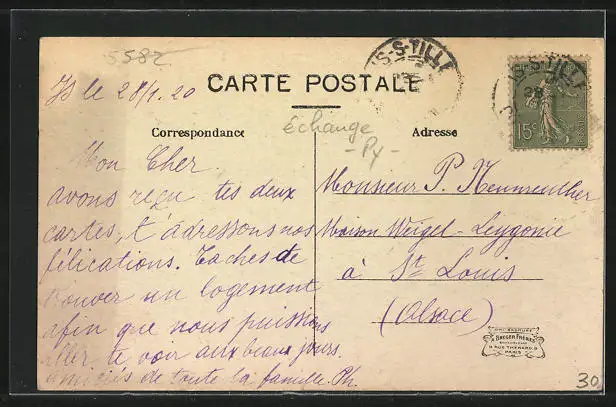 5582
Is le 28/1. 20
IS-S-TILLE
CARTE POSTALE
IS-S-TILLE
28
15c
Correspondance
Adresse
échange
- Py -
Mon Cher,
avons reçu tes deux
cartes, t'adressons nos
félications. Taches de
trouver un logement
afin que nous puissions
aller te voir aux beaux jours.
amitiés de toute la famille. Ph
Monsieur P. Neumenther
Maison Weigel-Leygonie
à St Louis
(Alsace)
BREGER FRÈRES
9 RUE THÉNARD 9
PARIS
30